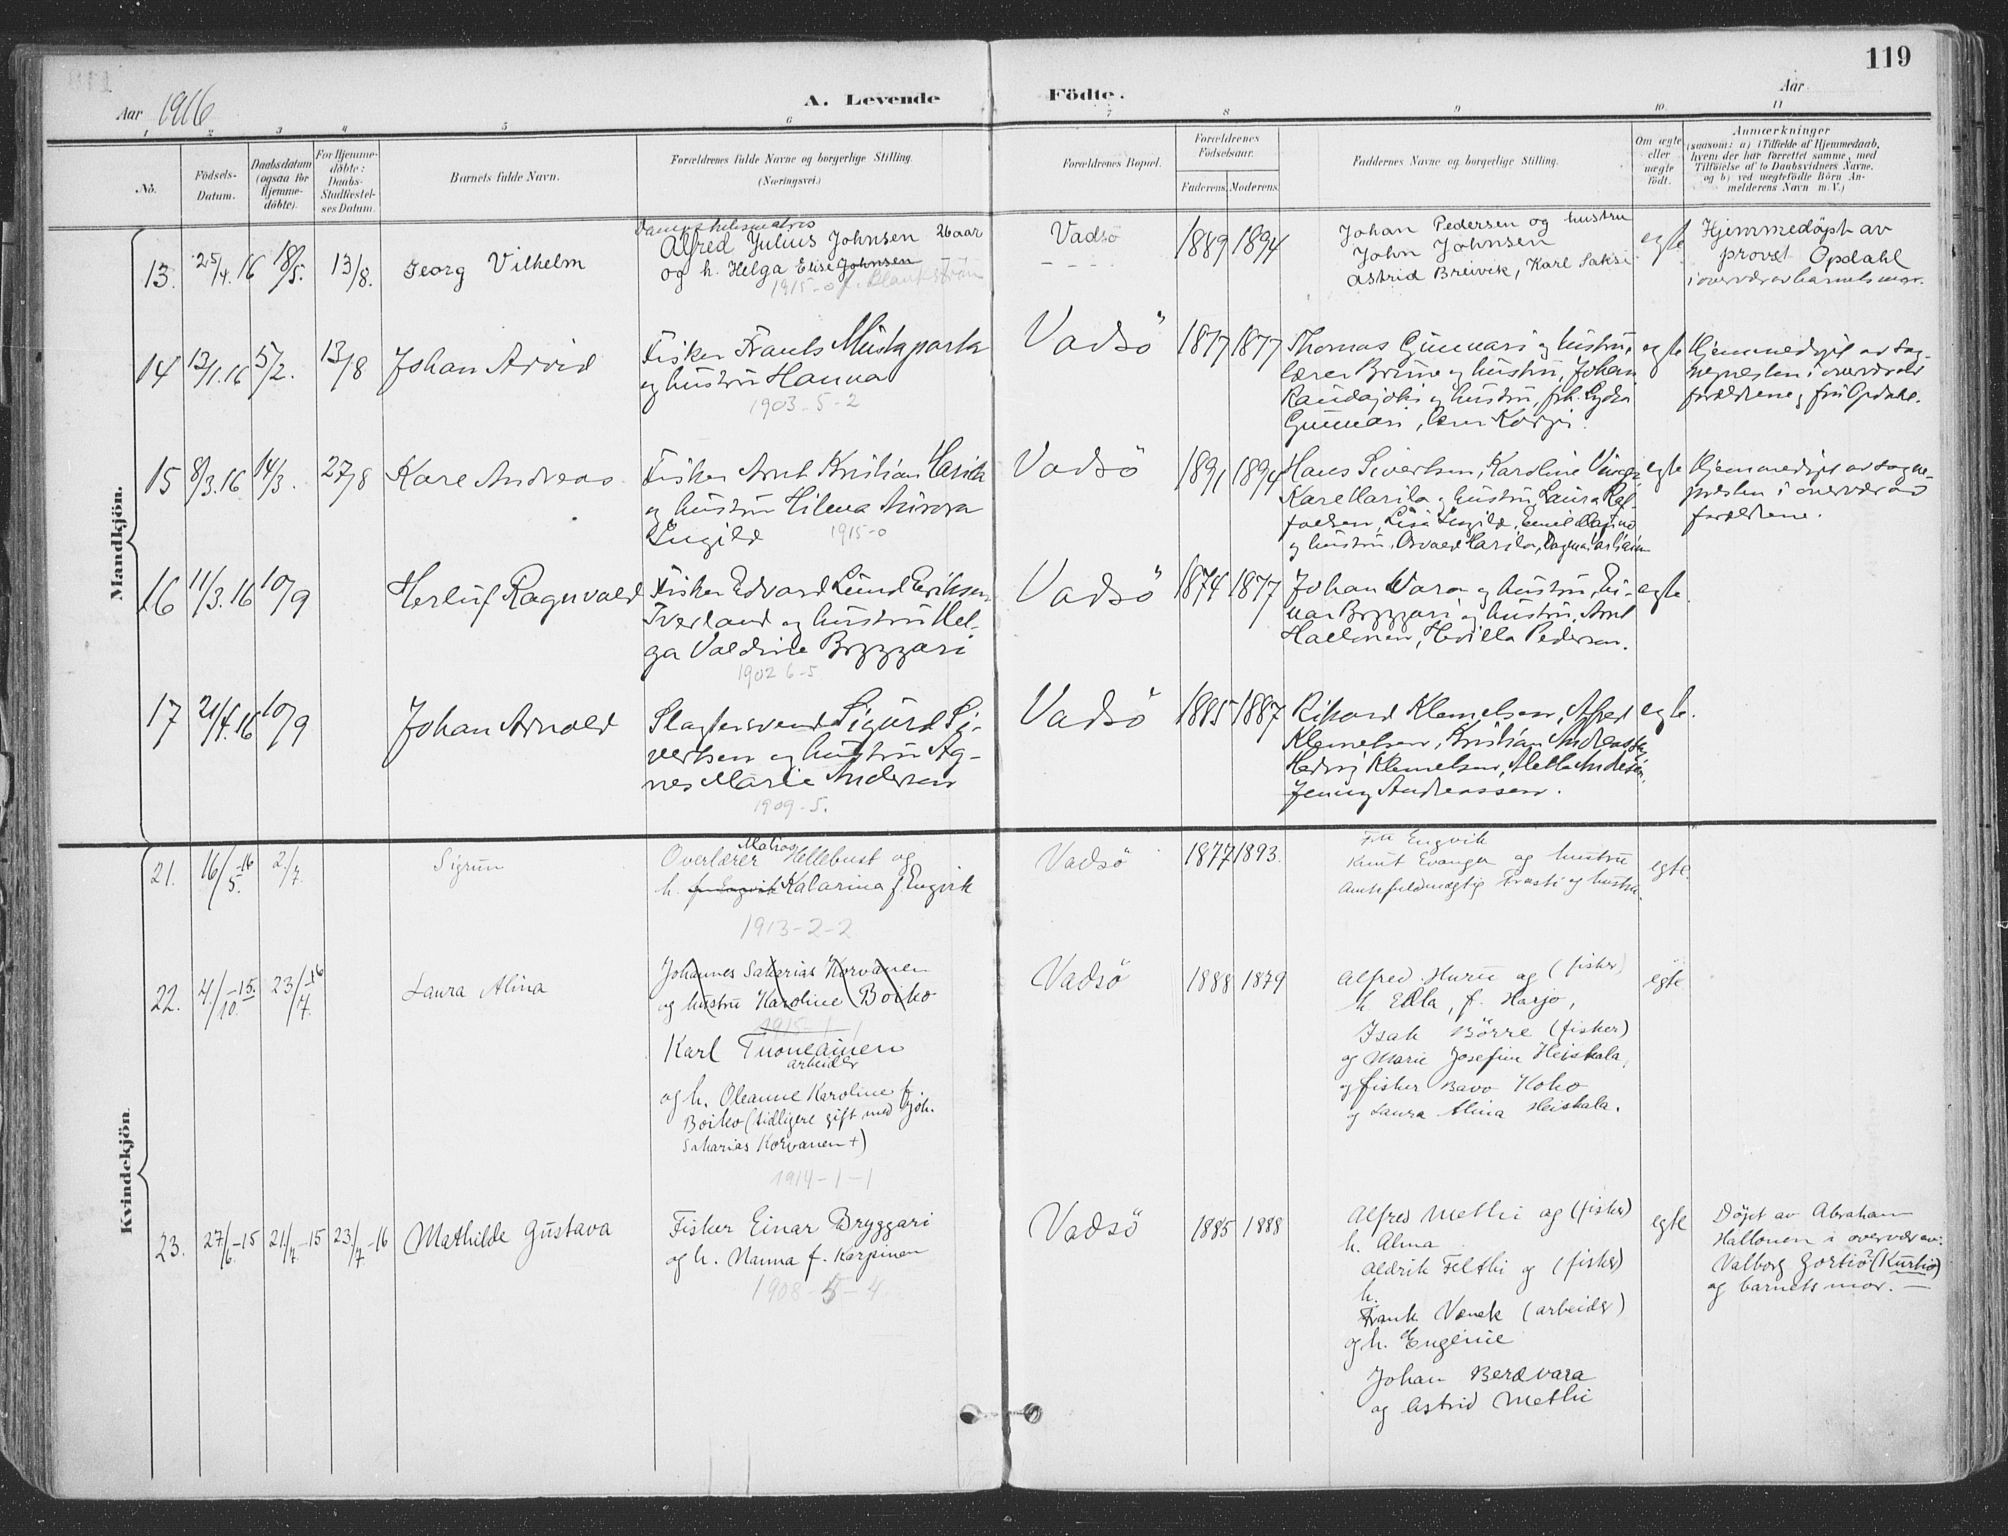 119
Aar 1916
A. Levende Födte.
Aar
1 2 3 4 5 6 7 8 9 10. 11
No.
Födsels-
Datum.
Daabsdatum
(ogsaa for
Hjemme-
döbte).
For Hjemme-
döbte:
Daabs-
Stadfæstel-
ses Datum.
Barnets fulde Navn.
Forældrenes fulde Navne og borgerlige Stilling.
(Næringsvei.)
Forældrenes Bopæl.
Forældrenes
Födselsaar.
Faderens. Moderens.
Faddernes Navne og borgerlige Stilling.
Om ægte
eller
uægte
födt.
Anmærkninger
(saasom: a) i Tilfælde af Hjemmedaab,
hvem der har forrettet samme, med
Tilföielse af to Daabsvidners Navne,
og b) ved uægtefödte Börn An-
melderens Navn m. V.)
Mandkjön.
13. 25/4. 16 18/5. 13/8. Georg Vilhelm
Alfred Julius Johnsen 26 aar
og h. Helga Elise Johnsen
1915-0 f. Blankström
Vadsö
1889 1894
Johan Pedersen og hustru
John Johnsen
Astrid Breivik, Karl Saksi
egte
Hjemmedöpt av
provst Opdahl
i overvær av barnets mor.
14 13/1.16 5/2. 13/8 Johan Arvid
Fisker Frants Mustaparta
og hustru Hanna
1903-5-2
Vadsö
1877 1877
Thomas Gunnari og hustru,
lærer Brune og hustru, Johan
Raudajoki og hustru, frk. Lydia
Gunnari,
egte
Hjemmedöpt av sog-
nepresten i overvær av
forældrene og fru Opdahl.
15 8/3.16 14/3. 27/8 Kare Andreas
Fisker Arnt Kristian Harila
og hustru Hilma Aurora
Ingild
1915-0
Vadsö
1891 1894
Hans Sivertsen, Karoline
Kare Harila og hustru, Laura
Lisa Ingild,
og hustru, Osvald Harila, Dagmar
egte
Hjemmedöpt av sogne-
presten i overvær av
forældrene.
16 11/3.16 10/9 Herluf Ragnvald
Fisker Edvard Lund Eriksen
Tverland og hustru Hel-
ga Valdine Bryggari
1902 6-5
Vadsö
1874 1877
Johan Vara og hustru, Ei-
nar Bryggari og hustru, Arnt
Hallonen, Hevilla Pedersen.
egte.
17 21/4.16 10/9 Johan Arnold
Slagtersvend Sigurd Si-
vertsen og hustru Ag-
nes Marie Andersen
1909-5.
Vadsö
1885 1887
Rikard Klemetsen, Alfred
Klemetsen, Kristian Andreassen
Hedvig Klemetsen, Metha Andersen,
Jenny Andreassen.
egte.
Kvindekjön.
21. 16/5.-16 2/7. Sigrun
Matias
Overlærer Hellebust og
h. f. Engvik Katarina f. Engvik
1913-2-2
Vadsö
1877 1893.
Engvik
Knut Evanger og hustru
Amtsfuldmægtig Trasti og hustru.
egte.
22. 4/10.-15. 23/7.-16 Laura Alina
Johannes Sakarias Korvanen
og hustru Karoline Boiko
1915-1-1
Karl Tuoneainen
arbeider
og h. Oleanne Karoline f.
Boiko (tidligere gift med Joh.
Sakarias Korvanen +)
1914-1-1
Vadsö
1888 1879
Alfred Huru og (fisker)
h. Ella, f. Harjo,
Isak Börre (fisker)
og Marie Josefine Heiskala,
og fisker Bavo Koho
og Laura Alina Heiskala.
egte
23. 27/6.-15 21/7.-15 23/7.-16 Mathilde Gustava
Fisker Einar Bryggari
og h. Nanna f. Karpinen
1908-5-4
Vadsö
1885 1888
Alfred Methi og (fisker)
h. Alma
Aldrik Felthi og (fisker)
h.
Frank Vænek (arbeider)
og h. Eugenie
Johan Berdvara
og Astrid Methi
egte
Döpt av Abraham
Hallonen i overvær av:
Valborg Gortiö? (Kurtiö)
og barnets mor. —